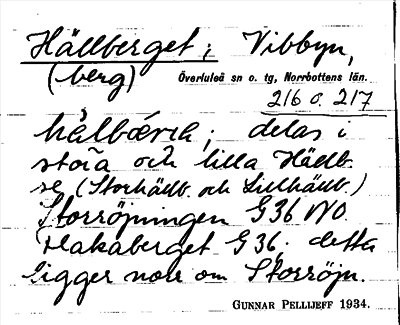 Hällberget i Vibbyn,
(berg) Överluleå sn o. tg, Norrbottens län.
216 o. 217
delas i
stora och lilla Hällb.
se (Storhällb. och Lillhällb.)
Storröjningen G36 NO.
Hakaberget G36. detta
ligger norr om Storröjn.
GUNNAR PELLIJEFF 1934.